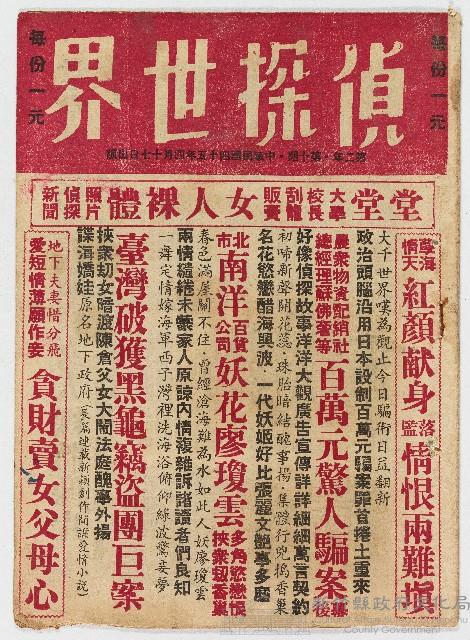 偵探世界
每份一元
每份一元
第二年・第十期・中華民國四十五年四月十七日出版
堂堂大學校長刮龍販賣女人裸體照片偵探新聞
孽海情天 紅顏献身 落監 情恨兩難填
大千世界嘆為觀止今日騙術日益翻新
政治頭腦活用日本設制百萬元騙案罪首捲土重來
農衆物資配給社總經理蘇佛菴等 百萬元驚人騙案
好像偵探故事洋洋大觀廣生宣傳詳詳細細萬言契約
初啼新聲開花蕊・珠胎暗結醜事揚・集體行兇搗香巢
名花慾戀醋海興波 一代妖姬好比張麗文艷事多麗
北市南洋百貨公司 妖花廖瓊雲 多角慾戀恨挾衆刼香巢
春色滿屋關不住 曾經滄海難為水如此人妖廖瓊雲
兩情繾綣未獲家人原諒內情複雜訴諸讀者們良知
一舞定情嫁海軍西子灣裡洗海浴俯仰綠波驚妾夢
臺灣破獲黑龜竊盜團巨案
挾衆刼女暗渡陳倉父女大鬧法庭醜事外揚
諜海嬌娃原名地下政府
地下夫妻惜分飛
愛短情薄願作妾 貪財賣女父母心
縣政府文化局
County Government